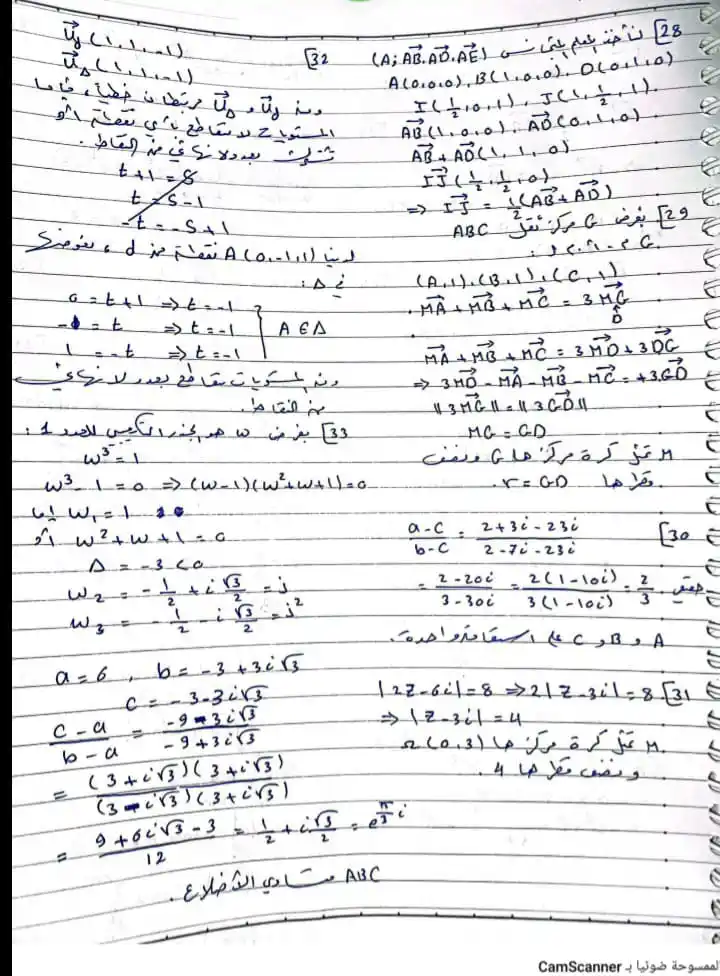 28] نأخذ المعلم المتجانس (A; AB⃗, AD⃗, AE⃗)
A(0,0,0), B(1,0,0), D(0,1,0)
I(1/2, 0, 1), J(1, 1/2, 1).
AB⃗(1,0,0) AD⃗(0,1,0)
AB⃗ + AD⃗(1,1,0)
IJ⃗(1/2, 1/2, 0)
=> IJ⃗ = 1/2(AB⃗ + AD⃗)
29] بفرض G مركز ثقل ABC
G م.أ.م.م لـ:
(A,1), (B,1), (C,1)
. MA⃗ + MB⃗ + MC⃗ = 3MG⃗
D
MA⃗ + MB⃗ + MC⃗ = 3MD⃗ + 3DG⃗
=> 3MD⃗ - MA⃗ - MB⃗ - MC⃗ = +3GD⃗
|| 3MG⃗ || = || 3GD⃗ ||
MG = GD
M تمثل كرة مركزها G ونصف
قطرها r = GD.
30] (a-c)/(b-c) = (2+3i-23i)/(2-7i-23i)
= (2-20i)/(3-30i) = 2(1-10i)/3(1-10i) = 2/3 حقيقي.
A و B و C على استقامة واحدة.
31] |2Z-6i|=8 => 2|Z-3i|=8
=> |Z-3i|=4
M. تمثل كرة مركزها Ω(0,3)
ونصف قطرها 4.
32] U⃗d(1,1,-1)
U⃗Δ(1,1,-1)
ومنه U⃗d و U⃗Δ مرتبطان خطياً، فإما
المستويات لا تتقاطع بأي نقطة أو
تشترك بعدد لا نهائي من النقاط.
t+1 = s
t = s-1
-t = -s+1
لدينا A(0,-1,1) نقطة من d، نعوضها
في Δ:
0 = t+1 => t=-1
-1 = t => t=-1
1 = -t => t=-1
A ∈ Δ
ومنه المستويات تتقاطع بعدد لا نهائي
من النقاط.
33] بفرض w هو الجذر التكعيبي للعدد 1:
w³=1
w³-1=0 => (w-1)(w²+w+1)=0
إما w₁=1
أو w²+w+1=0
Δ = -3 < 0
w₂ = -1/2 + i √3/2 = j
w₃ = -1/2 - i √3/2 = j²
a=6, b=-3+3i√3
c=-3-3i√3
(c-a)/(b-a) = (-9-3i√3)/(-9+3i√3)
= (3+i√3)(3+i√3)/(3-i√3)(3+i√3)
= (9+6i√3-3)/12 = 1/2 + i√3/2 = e^(π/3 i)
ABC متساوي الأضلاع.
الممسوحة ضوئيا بـ CamScanner